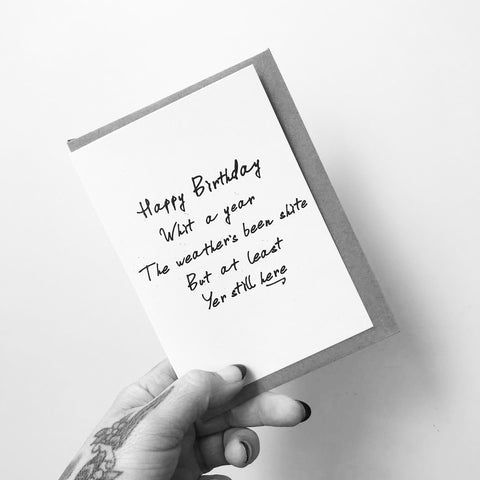 Happy Birthday
Whit a year
The weather's been shite
But at least
Yer still here